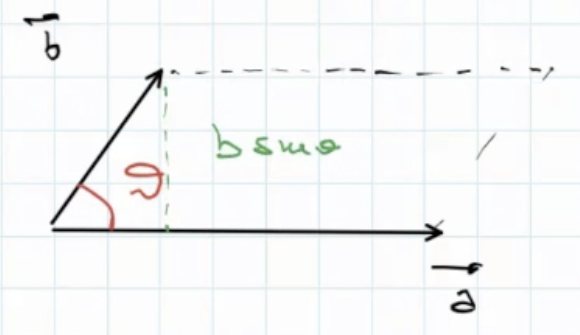 b
b sinθ
ϑ
a